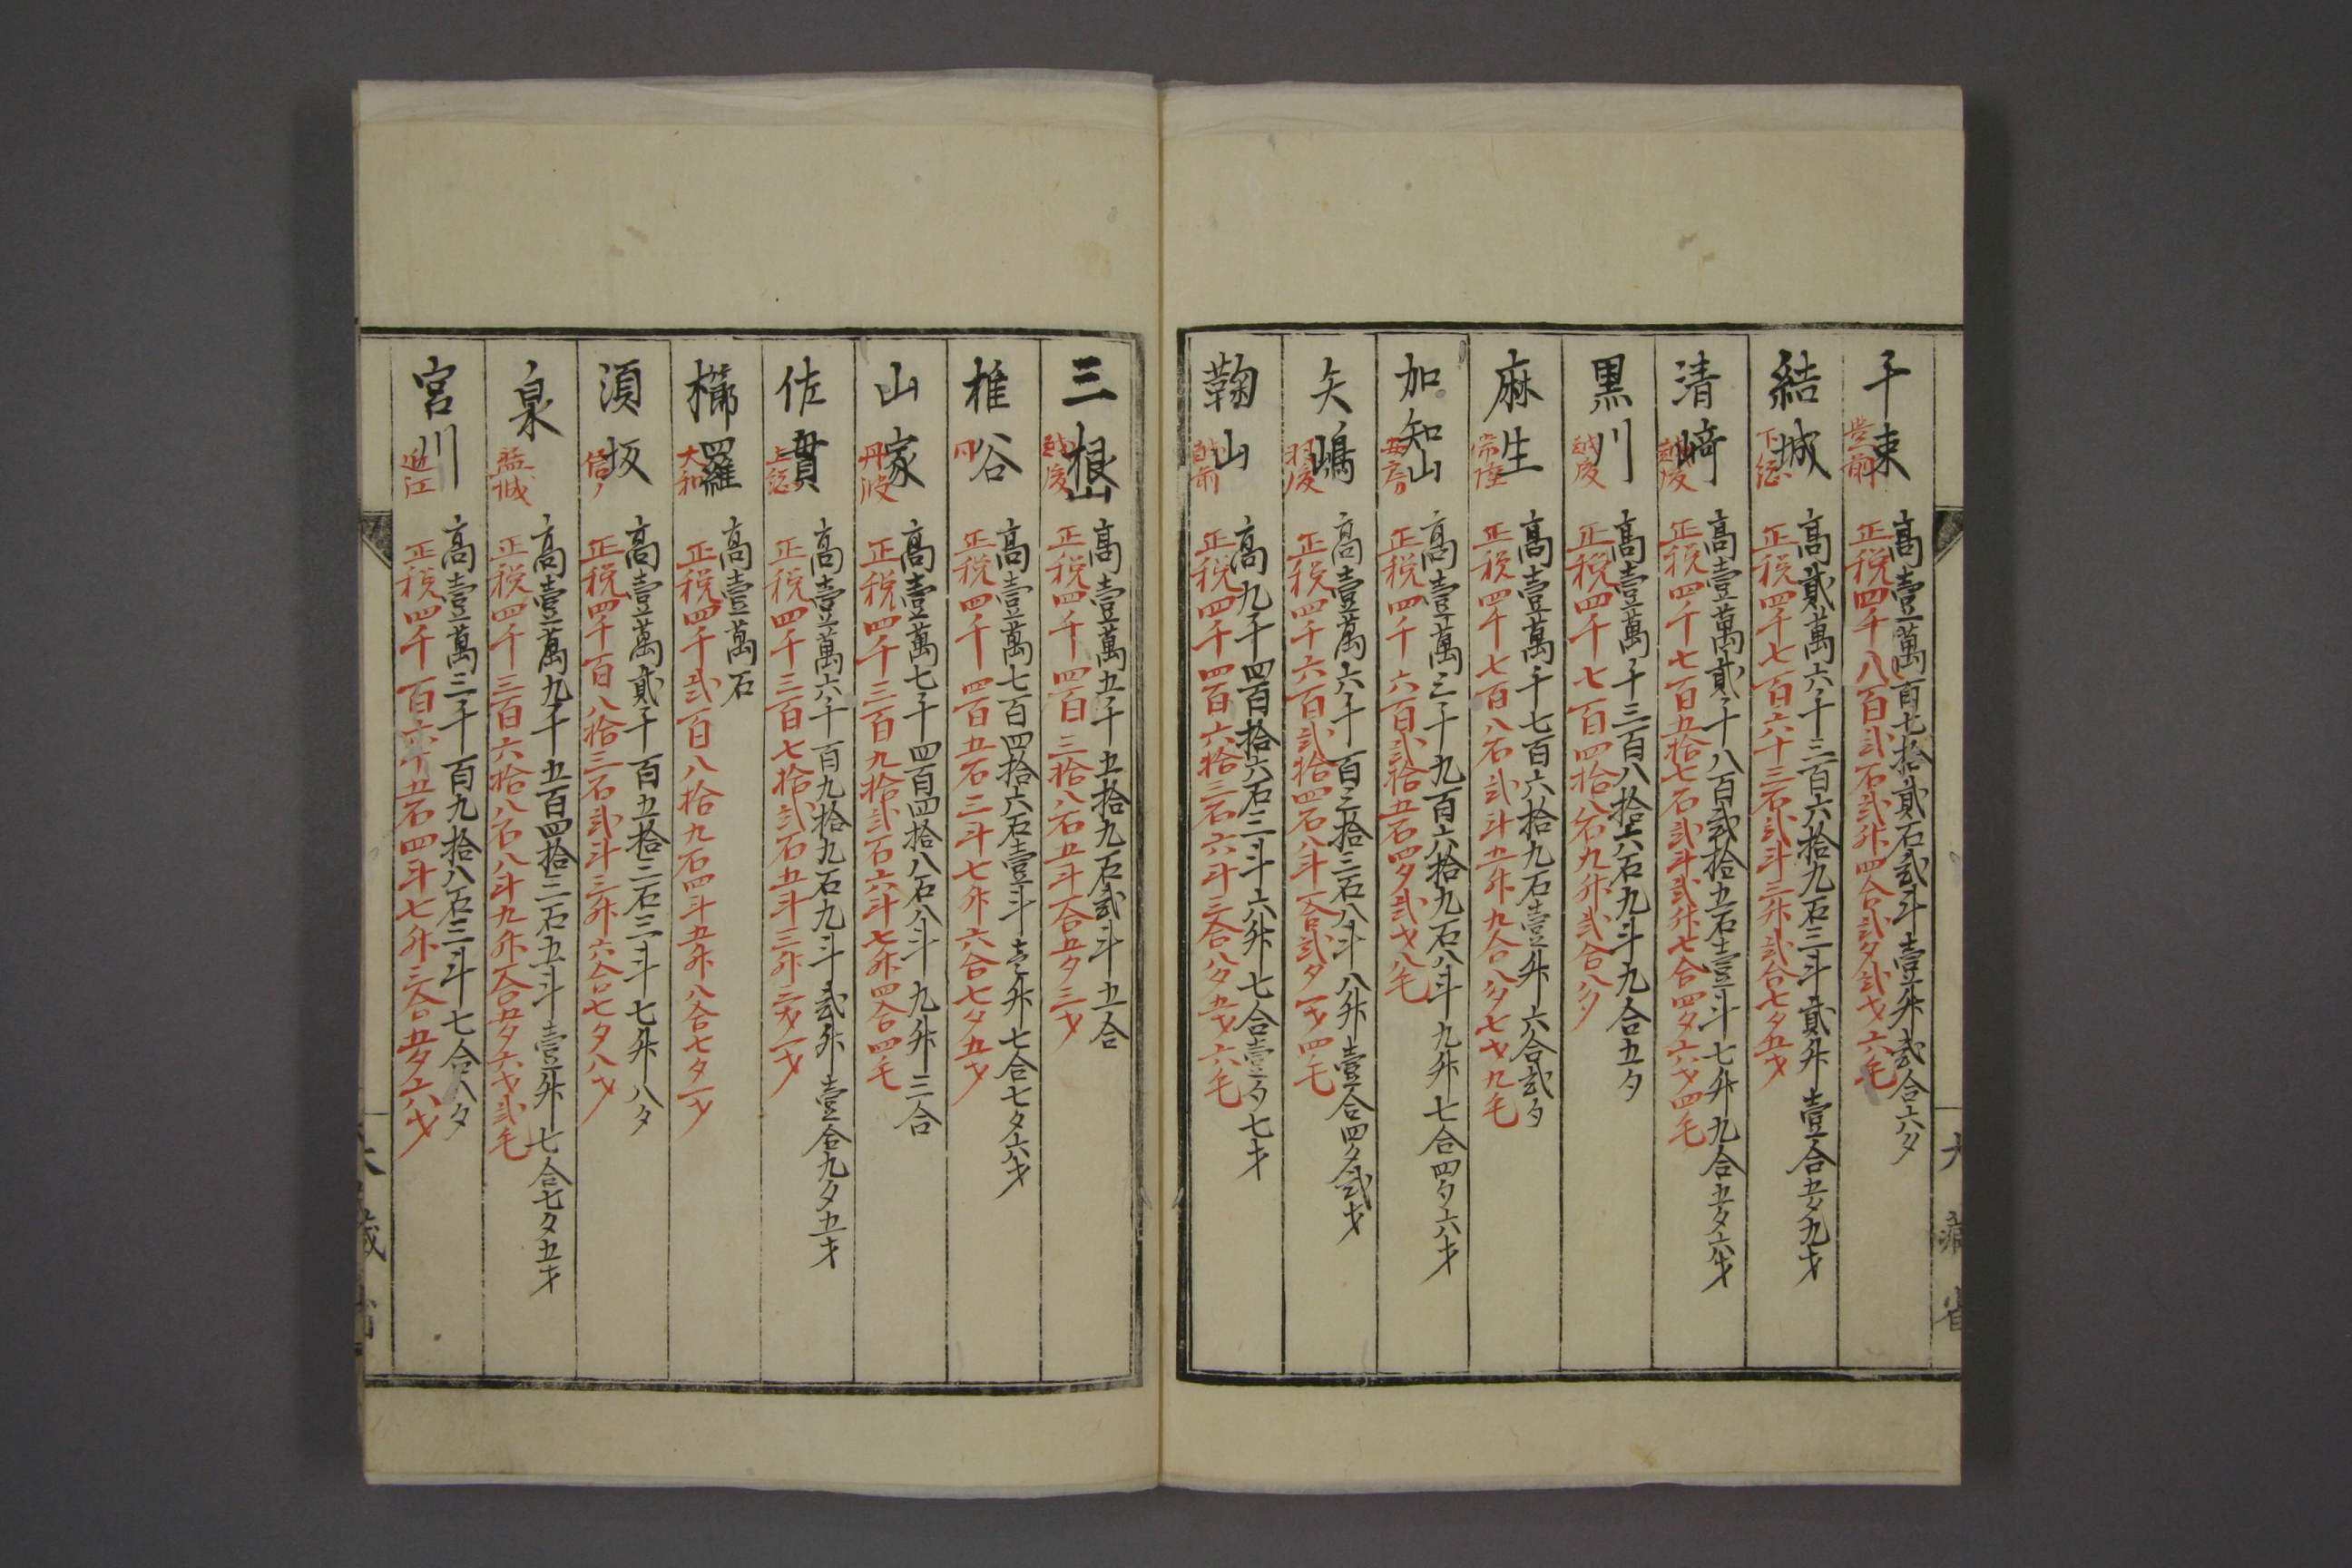 千束
豊前
高壹萬百七拾貳石貳斗壹升貳合六夕
正税四千八百貳石貳升四合貳夕貳才六毛
結城
下総
高貳萬六千三百六拾九石三斗貳升壹合五夕九才
正税四千七百六十三石貳斗三升貳合七夕五才
清﨑
越後
高壹萬貳千八百貳拾五石壹斗七升九合五夕六才
正税四千七百五拾七石貳斗貳升七合四夕六才四毛
黒川
越後
高壹萬千三百八拾六石九斗九合五夕
正税四千七百四拾八石九升貳合八夕
麻生
常陸
高壹萬千七百六拾九石壹升六合貳夕
正税四千七百八石貳斗五升九合八夕七才九毛
加知山
安房
高壹萬三千九百六拾九石八斗九升七合四夕六才
正税四千六百貳拾五石四夕貳才八毛
矢嶋
羽後
高壹萬六千百三拾三石八斗八升壹合四夕貳才
正税四千六百貳拾四石八斗八合貳夕一才四毛
鞠山
越前
高九千四百拾六石三斗六升七合壹夕七才
正税四千四百六拾三石六斗三合八夕五才六毛
三根山
越後
高壹萬五千五拾九石貳斗五合
正税四千四百三拾八石五斗八合五夕三才
椎谷
高壹萬七百四拾六石壹斗壱升七合七夕六才
正税四千四百五石三斗七升六合七夕五才
山家
丹波
高壹萬七千四百四拾八石八斗九升三合
正税四千三百九拾貳石六斗七升四合四毛
佐貫
上総
高壹萬六千百九拾九石九斗貳升壹合九夕五才
正税四千三百七拾貳石五斗三升三夕一才
櫛羅
大和
高壹萬石
正税四千貳百八拾九石四斗五升八合七夕一才
須坂
信ノ
高壹萬貳千百五拾三石三斗七升八夕
正税四千百八拾三石貳斗三升六合七夕八才
泉
磐城
高壹萬九千五百四拾三石五斗壹升七合七夕五才
正税四千三百六拾八石八斗九升八合五夕六才貳毛
宮川
近江
高壹萬三千百九拾八石三斗七合八夕
正税四千百六十五石四斗七升三合五夕六才
大藏省